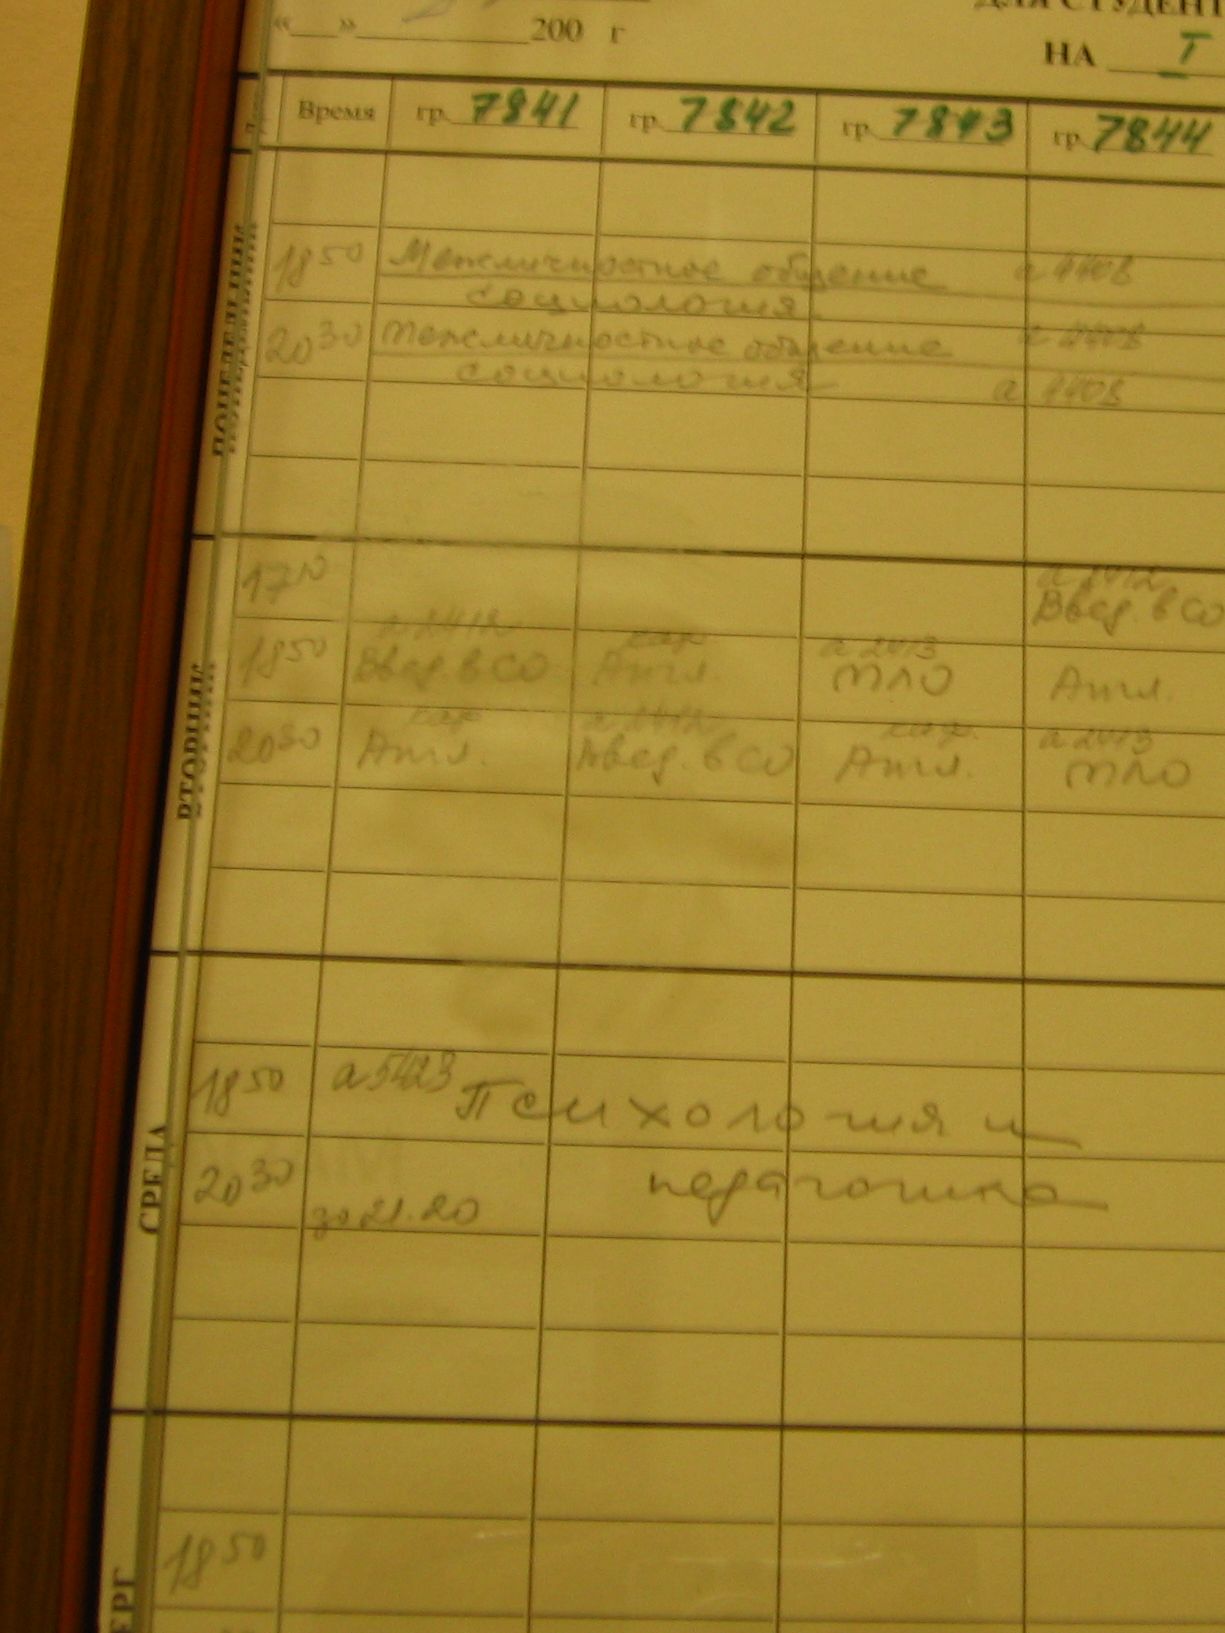 ДЛЯ СТУДЕНТ
«__»__________200 г
НА I
Время гр. 7841 гр. 7842 гр. 7843 гр. 7844
ПОНЕДЕЛЬНИК
18 50 Межличностное общение
социология
20 30 Межличностное общение
социология
ВТОРНИК
17 10 Введ. в СО
а 2412 каф а 2413
18 50 Введ. в СО Англ. МЛО Англ.
каф а 2412 каф. а 2413
20 30 Англ. Введ. в СО Англ. МЛО
СРЕДА
18 50 а 5423 Психология и
20 30 педагогика
до 21.20
ЕРГ
18 50